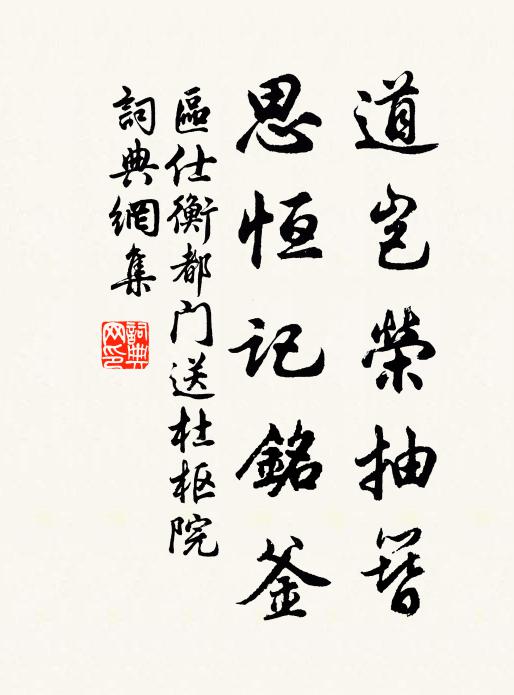 道岂榮抽簪
思恒记銘釜
區仕衡都门送杜枢院
詞典網集
詞典
网印